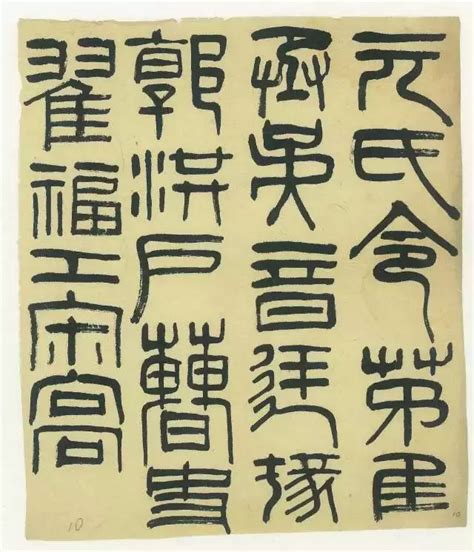 元氏令
丞吳音廷掾
郭洪戶曹史
翟福工宋高
10
10